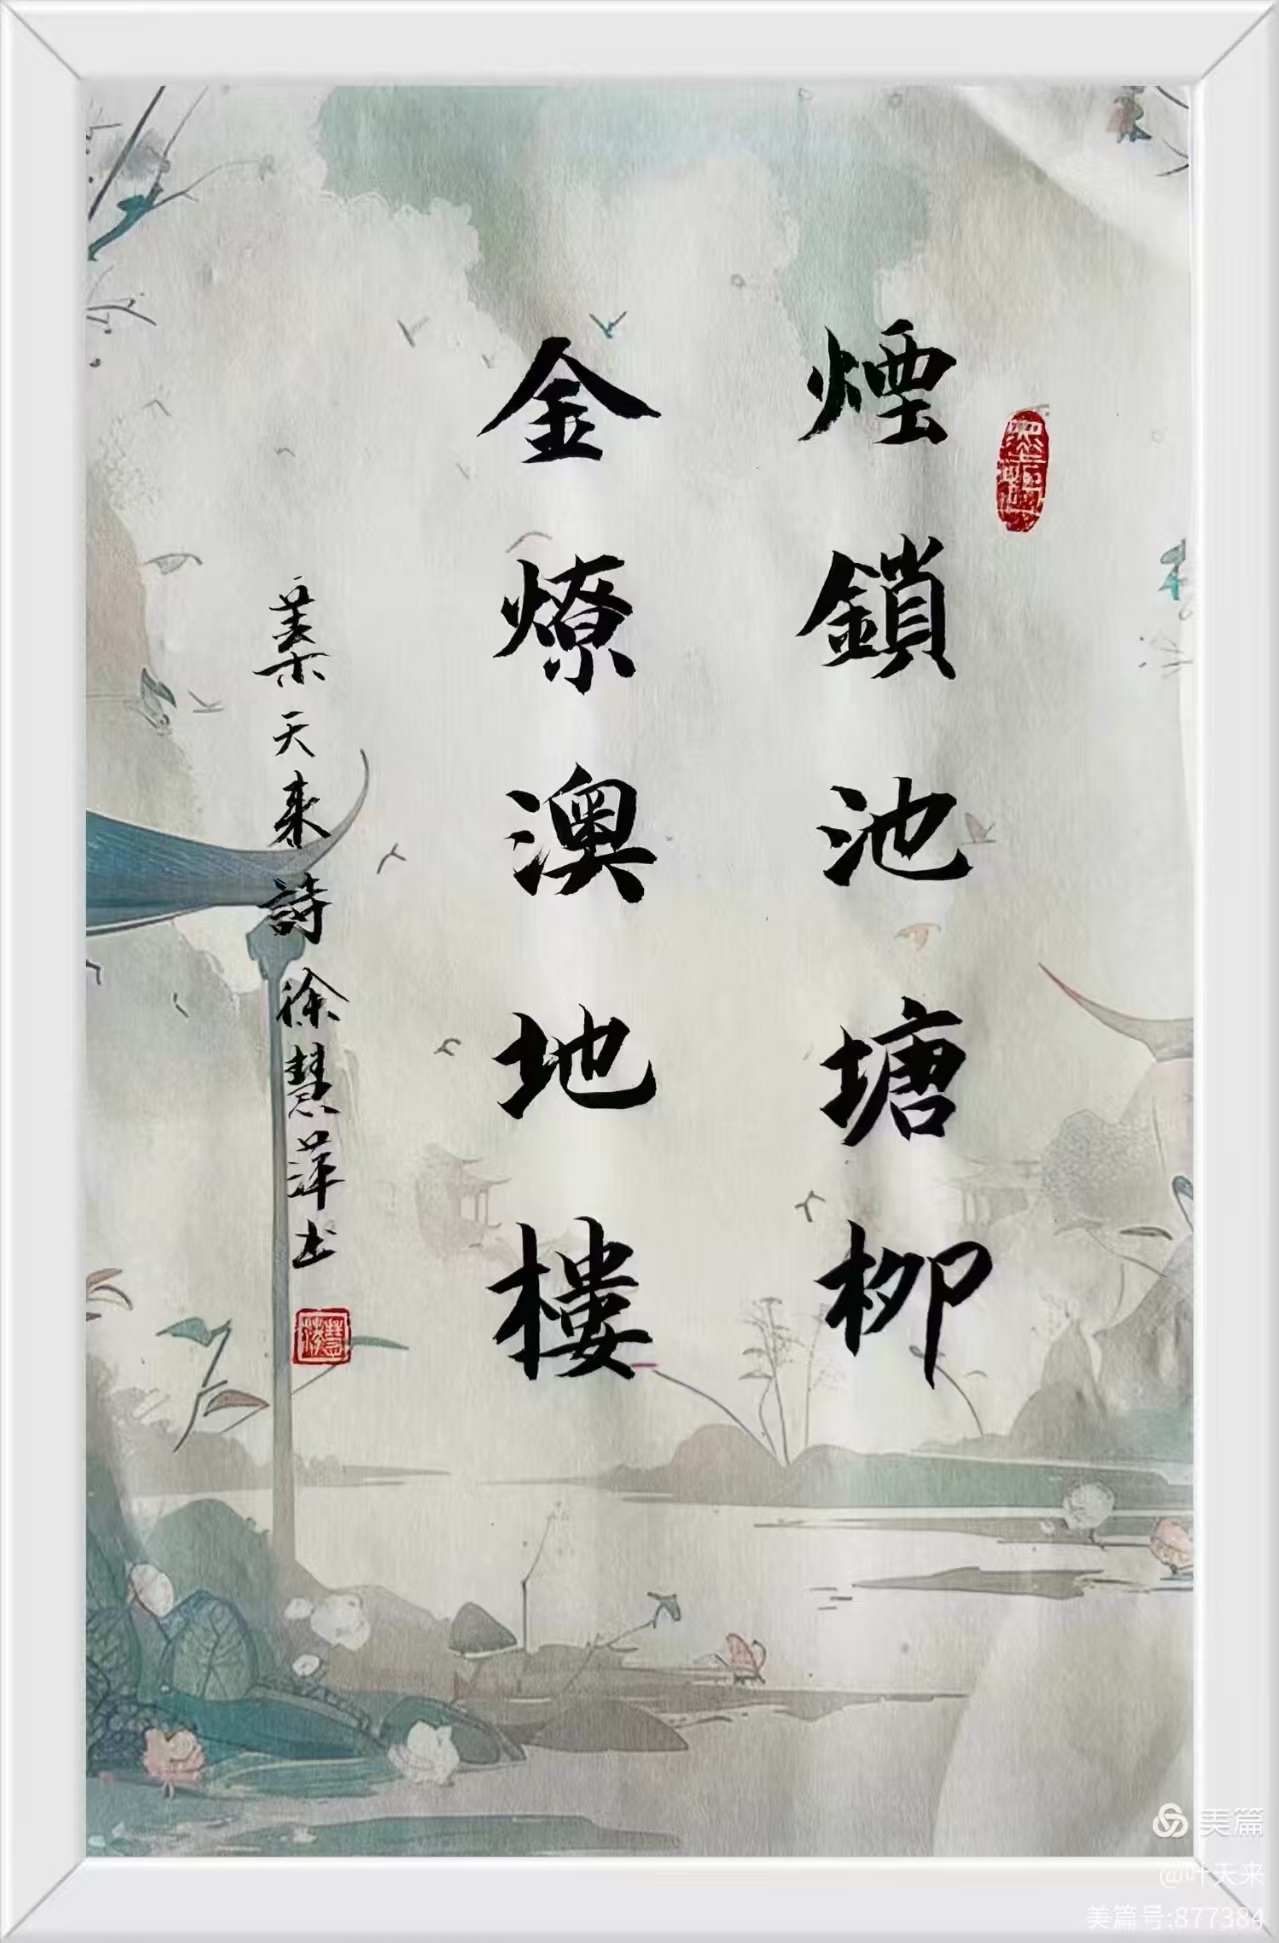 煙鎖池塘柳
金燎澳地樓
葉天来詩徐慧萍书
美篇
@叶天来
美篇号:877384